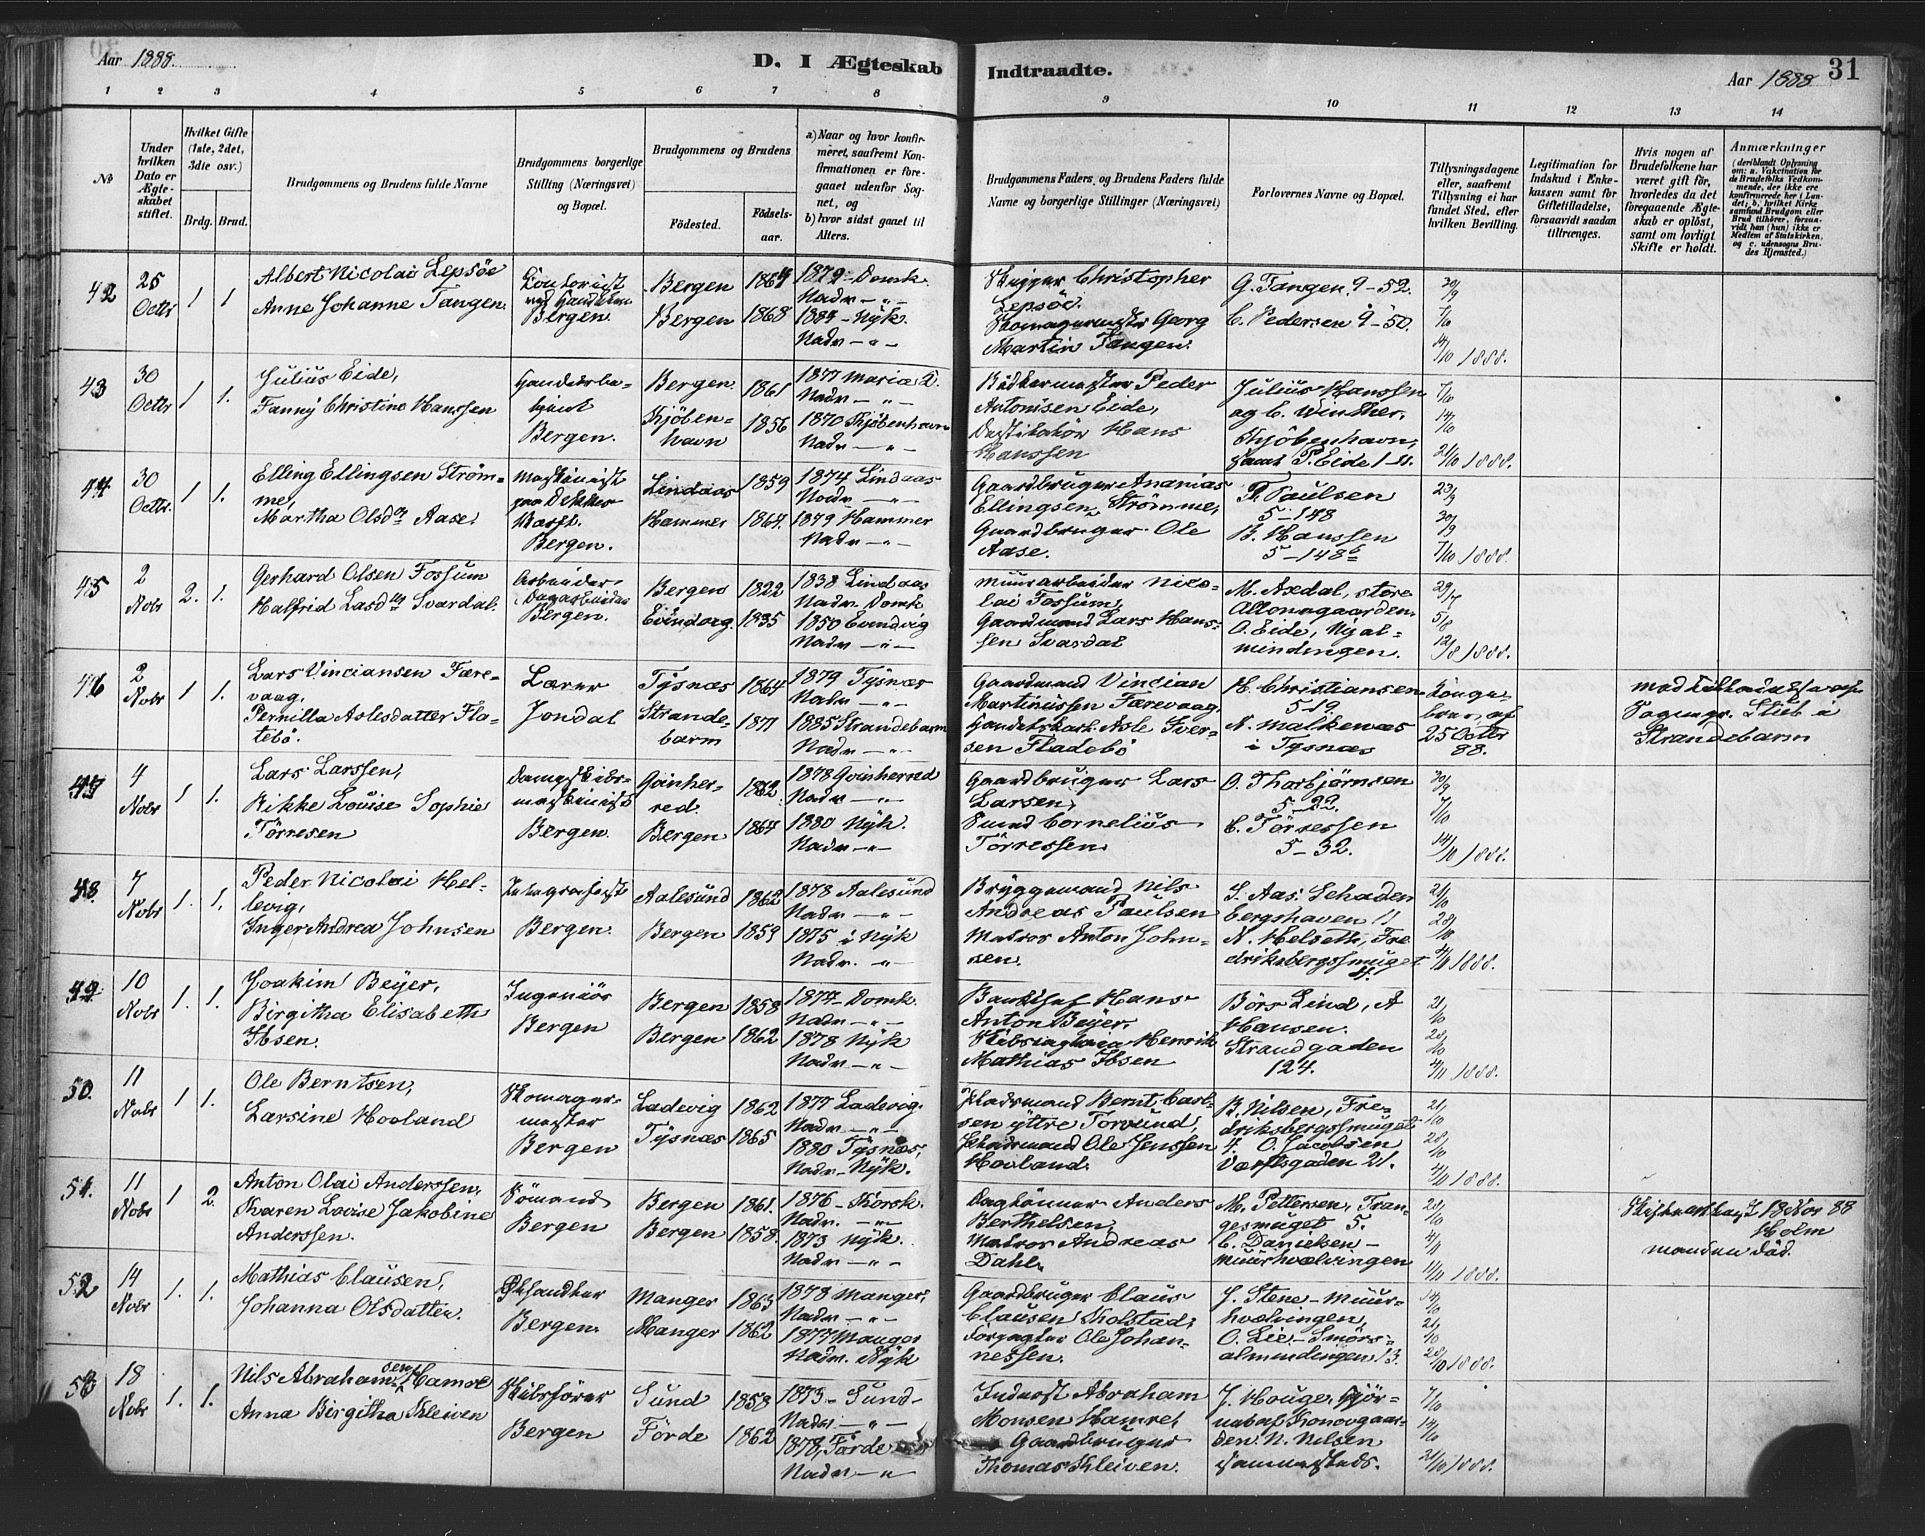 Aar 1888.
D. I Ægteskab
Indtraadte.
Aar 1888
31
1 2 3 4 5 6 7 8 9 10 11 12 13 14
№
Under hvilken Dato er Ægteskabet stiftet.
Hvilket Gifte (1ste, 2det, 3die osv.)
Brdg. Brud.
Brudgommens og Brudens fulde Navne
Brudgommens borgerlige Stilling (Næringsvei) og Bopæl.
Brudgommens og Brudens
Födested.
Födselsaar.
a) Naar og hvor konfirmeret, saafremt Konfirmationen er foregaaet udenfor Sognet, og
b) hvor sidst gaaet til Alters.
Brudgommens Faders, og Brudens Faders fulde Navne og borgerlige Stillinger (Næringsvei)
Forlovernes Navne og Bopæl.
Tillysningsdagene eller, saafremt Tillysning ei har fundet Sted, efter hvilken Bevilling.
Legitimation for Indskud i Enkekassen samt for Giftetilladelse, forsaavidt saadan tiltrænges.
Hvis nogen af Brudefolkene har været gift för, hvorledes da det foregaaende Ægteskab er oplöst, samt om lovligt Skifte er holdt.
Anmærkninger
(deriblandt Oplysning om: a. Vakcination for de Brudefolks Vedkommende, der ikke ere konfirmerede her i Landet; b, hvilket Kirkesamfund Brudgom eller Brud tilhörer, forsaavidt han (hun) ikke er Medlem af Statskirken, og c. udensogns Brudes Hjemsted.)
42 25 Octbr 1 1 Albert Nicolai Lepsöe
Anne Johanne Tangen.
Contorist
Bergen.
Bergen 1864
Bergen 1868
1879 - Domk.
Nadv - " -
1884 - Nyk.
Nadv - " -
Skipper Christopher
Lepsöe.
Skomagermester Georg
Martin Tangen.
G. Tangen 9-52.
C. Pedersen 9-50.
30/9
7/10
14/10 1888.
43 30 Octbr 1 1. Julius Eide,
Fanny Christine Hanssen
Bergen.
Bergen 1861
Kjöbenhavn 1856
1877 Maria K.
Nadv - " -
1870 Kjöbenhavn
Nadv - " -
Bödkermester Peder
Antonisen Eide,
Destilatör Hans
Hanssen
Julius Hanssen
og C. Winther,
Kjöbenhavn,
samt P. Eide 1-11.
7/10
14/10
21/10 1888.
44 30 Octbr. 1 1. Elling Ellingsen Strömme,
Martha Olsdtr Aase.
Maskinist
Bergen.
Lindaas 1859
Hammer 1864.
1874 Lindaas
Nadv - " -
1879 Hammer
Nadv - " -
Gaardbruger Ananias
Ellingsen Strömme,
Gaardbruger Ole
Aase.
T. Paulsen
5-148
B. Hanssen
5-148b
23/9
30/9
7/10 1888.
45 2 Nobr 2. 1. Gerhard Olsen Fossum
Halfrid Lasdtr Svardal.
Arbeider
Bergen.
Bergen 1822
Evindvig. 1835
1838 Lindaas
Nadv. Domk.
1850 Evindvig
Nadv - " -
Muurarbeider Nicolai Fossum,
Gaardmand Lars Hanssen Svardal
M. Axdal, store
Altonagaarden.
O. Eide, Nyalmindingen.
29/7
5/8
12/8 1888.
46 2 Nobr 1 1. Lars Vinciansen Færevaag,
Pernilla Aslesdatter Flatebö.
Lærer
Jondal
Tysnæs 1864
Strandebarm 1871
1879 Tysnæs
Nadv - " -
1885 Strandebarm
Nadv - " -
Gaardmand Vincian
Martinussen Færevaag,
Handelskarl Asle Iversen Fladebö
H. Christiansen
5-19.
N. Malkenæs
i Tysnæs
Kongebrev af
25 Octbr
88.
med Tilladelse af
Sogнepr. Stub i
Strandebarm
47 4 Nobr 1 1. Lars Larssen,
Rikke Louise Sophie
Törresen
Dampskibsmaskinist
Bergen.
Qvinherred. 1862
Bergen 1864
1878 Qvinherred
Nadv - " -
1880 Nyk.
Nadv - " -
Gaardbruger Lars
Larsen,
Svend Cornelius
Törressen
O. Thorbjørnsen
5-22.
C. Törressen
5-32.
30/9
7/10
14/10 1888.
48. 7 Nobr 1. 1. Peder Nicolai Helberg,
Inger Andrea Johnsen
Bergen.
Aalesund 1862
Bergen 1859
1878 Aalesund
Nadv - " -
1875 i Nyk
Nadv. - " -
Bryggemand Nils
Andreas Paulsen
Matros Anton Johnsen.
S. Aas. Schadenbergshaven 11
N. Helseth, Fredriksbergssmuget
21/10
28/10
4/11 1888.
49 10 Nobr 1. 1. Joakim Beyer,
Birgitha Elisabeth
Ibsen.
Ingeniör
Bergen
Bergen 1858
Bergen 1862
1877 - Domk.
Nadv - " -
1878 Nyk
Nadv - " -
Bankchef Hans
Anton Beyer,
Henrik
Mathias Ibsen
Börs Lind, A
Hansen.
Strandgaden
124.
21/10
28/10
4/11 1888.
50. 11 Nobr 1 1. Ole Berntsen,
Larsine Hovland
Skomagermester
Bergen
Ladevig 1862
Tysnæs 1865
1877 Ladevig.
Nadv - " -
1880 Tysnæs,
Nadv - Nyk.
Pladsmand Bernt Carlsen yttre Torvund,
Ole Jenssen
Hovland.
B. Nilsen, Fredriksbergssmuget
4. O. Jacobsen
Værftsgaden 21.
21/10
28/10
4/11 1888.
51. 11 Nobr 1 2. Anton Olai Anderssen,
Karen Lovise Jakobine
Anderssen.
Sömand
Bergen
Bergen 1861.
Bergen 1858.
1876 - Korsk.
Nadv. - " -
1873 Nyk.
Nadv - " -
Daglönner Anders
Berthelsen,
Matros Andreas
Dahl.
M. Pettersen, Trangesmuget 5.
C. Danielsen -
Muurhvelvingen
28/10
4/11
11/11 1888.
Skifteattest 18 Nov 88
Holm
manden död.
52 14 Nobr 1. 1. Mathias Clausen,
Johanna Olsdatter.
Bergen.
Manger 1863
Manger 1862
1878 Manger,
Nadv - " -
1877 Manger
Nadv. Nyk
Gaardbruger Claus
Clausen Kolstad,
Forpagter Ole Johannessen.
J. Stene - Muurhvelvingen,
O. Lie - Smörsalmindingen 13.
14/10
21/10
28/10 1888.
53 18 Nobr 1. 1. Nils Abrahamsen Hamre
Anna Birgitha Kleiven
Skibsförer
Bergen
Sund 1858
Förde 1862
1873 - Sund -
Nadv - " -
1878, Förde
Nadv - " -
Inderst Abraham
Monsen Hamre,
Gaardbruger
Thomas Kleiven.
J. Houge, Hjörnet af Konovgaarden. N. Nilsen
sammesteds.
7/10
14/10
21/10 1888.